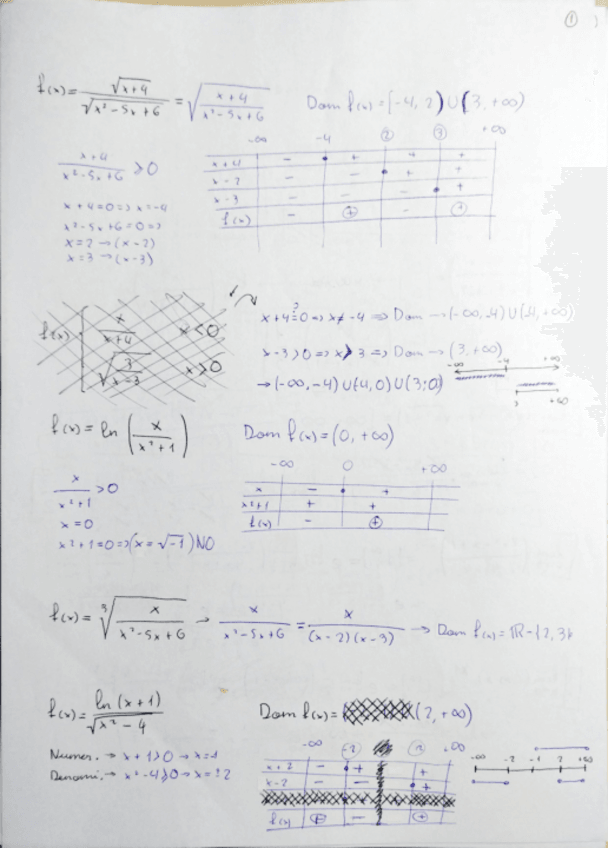 1
f(x) = √(x+4) / √(x²-5x+6) = √((x+4)/(x²-5x+6)) Dom f(x) = [-4, 2) ∪ (3, +∞)
-∞ -4 2 3 +∞
(x+4)/(x²-5x+6) ≥ 0
x+4 - + + +
x-2 - - + +
x-3 - - - +
f(x) - + - +
x+4=0 => x=-4
x²-5x+6=0 =>
x=2 → (x-2)
x=3 → (x-3)
f(x) { x/(x+4) x<0
√(3/(x-3)) x>0
x+4=0 => x≠-4 => Dom → (-∞, -4) ∪ (-4, +∞)
x-3>0 => x>3 => Dom → (3, +∞)
-∞ -4 +∞
→ (-∞, -4) ∪ (-4, 0) ∪ (3, 0)
3 +∞
f(x) = ln (x/(x²+1)) Dom f(x) = (0, +∞)
-∞ 0 +∞
x/(x²+1) > 0
x - +
x²+1 + +
f(x) - +
x=0
x²+1=0 => (x=√-1) NO
f(x) = ∛(x/(x²-5x+6)) → x/(x²-5x+6) = x/((x-2)(x-3)) → Dom f(x) = IR-{2, 3}
f(x) = ln(x+1) / √(x²-4) Dom f(x) = (2, +∞)
-∞ -2 2 +∞
Numer. → x+1>0 → x=-1
Denomi. → x²-4>0 → x=±2
x+2 - + +
x-2 - - +
f(x) + - +
-∞ -2 -1 2 +∞